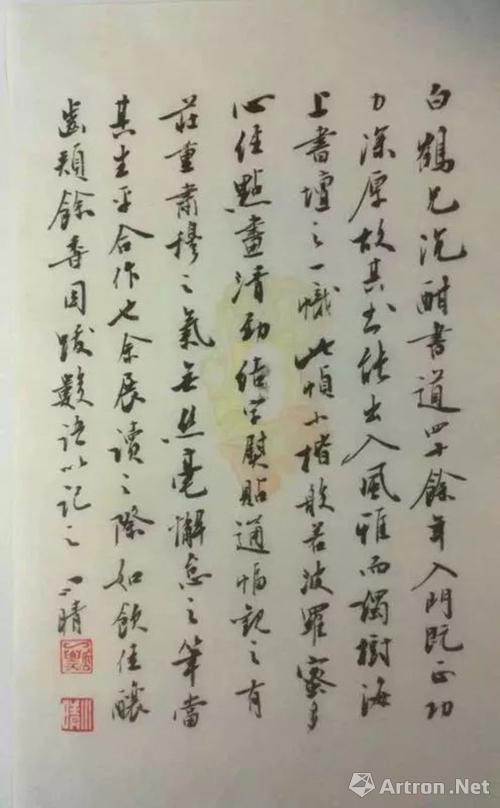 白鶴兄沉酣書道四十餘年入門既正功
力深厚故其书能出入風雅而獨樹海
上書壇之一幟此幀小楷般若波羅蜜多
心經點畫清勁结字熨貼通幅觀之有
莊重肅穆之氣無丝毫懈怠之筆當
其生平合作也余展讀之際如飲佳釀
齒頰餘香因跋數语以記之 一晴
Artron.Net